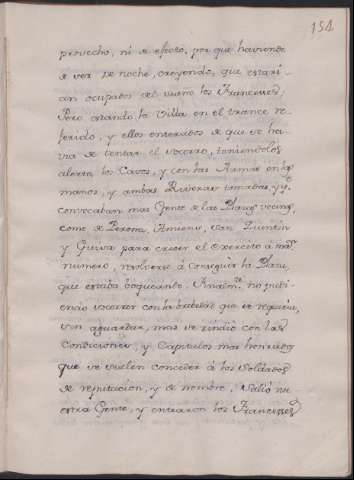 154
provecho, ni de efecto, por que haviendo
de ser de noche, creyendo, que estari-
an ocupados del sueño los Franceses;
Pero estando la Villa en el trance re-
ferido, y ellos enterados de que se ha-
via de tentar el socorro, teniendolos
alerta los Cavos, y con las Armas en las
manos, y ambas Riveras tomadas, y q.e
convocaban mas Gente de las Plazas vecinas,
como de Perona, Amiens, San Quintin
y Guisa para crecer el Exercito á má.r
numero, resolverse á conseguir la Plaza,
que estaba boqueando. Finalm.te no pudi-
endo socorrer con la brebedad que se requeria,
sin aguardar, mas se rindió con las
Condiciones, y Capitulos mas honrados
que se suelen conceder á los Soldados
de reputacion, y de nombre. Salió nu-
estra Gente, y entraron los Franceses